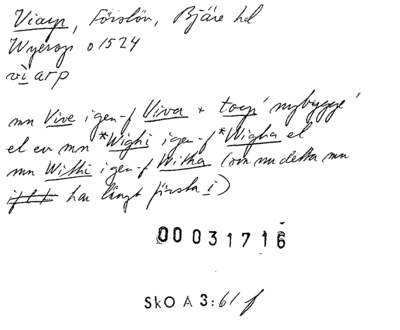 Viarp, Förslöv, Bjäre hd
Wyerop o 1524
vi arp
mn Vive i gen-f Viva + torp 'nybygge'
el ev mn *Wighi i gen-f *Wigha el
mn Withi i gen-f Witha (om nu detta mn
har långt första i)
00031716
SkO A 3:61 f